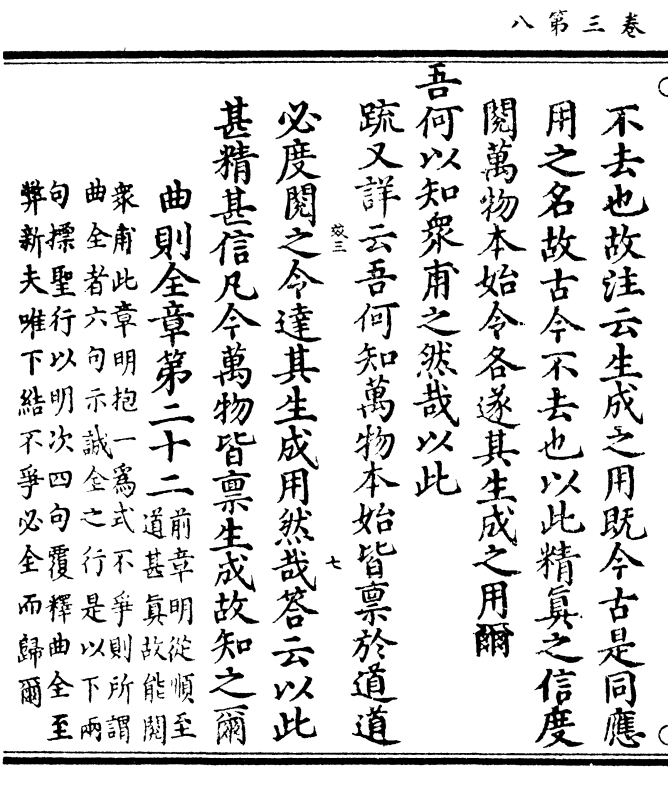 卷三第八
不去也故注云生成之用既今古是同應
用之名故古今不去也以此精真之信度
閱萬物本始令各遂其生成之用爾
吾何以知衆甫之然哉以此
疏又詳云吾何知萬物本始皆禀於道道
效三
七
必度閱之令達其生成用然哉答云以此
甚精甚信凡今萬物皆禀生成故知之爾
曲則全章第二十二
前章明從順至
道甚真故能閱
衆甫此章明抱一爲式不爭則所謂
曲全者六句示誠全之行是以下兩
句摽聖行以明次四句覆釋曲全至
弊新夫唯下結不爭必全而歸爾